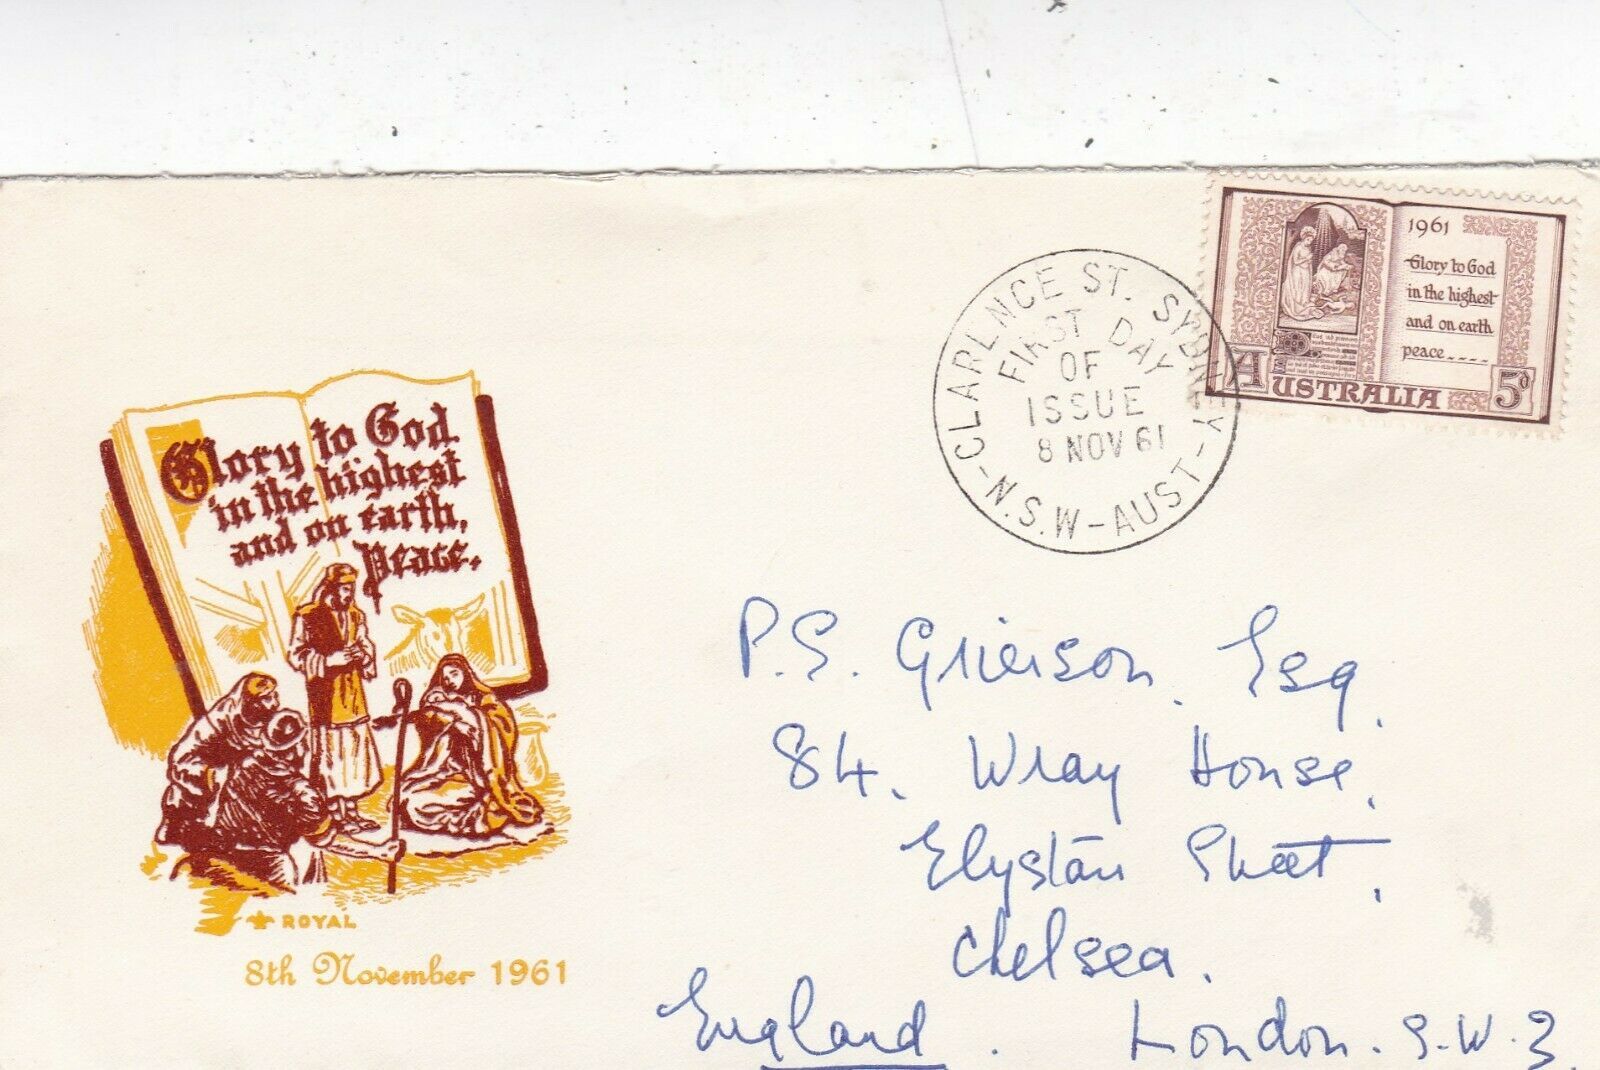 1961
Glory to God
in the highest
and on earth
peace....
AUSTRALIA 5D
CLARENCE ST. SYDNEY
N.S.W-AUST
FIRST DAY
OF
ISSUE
8 NOV 61
Glory to God
in the highest
and on earth,
Peace.
ROYAL
8th November 1961
P.S. Grierson Esq.
84. Wray House.
Elystan Street,
Chelsea.
England. London. S.W.3.